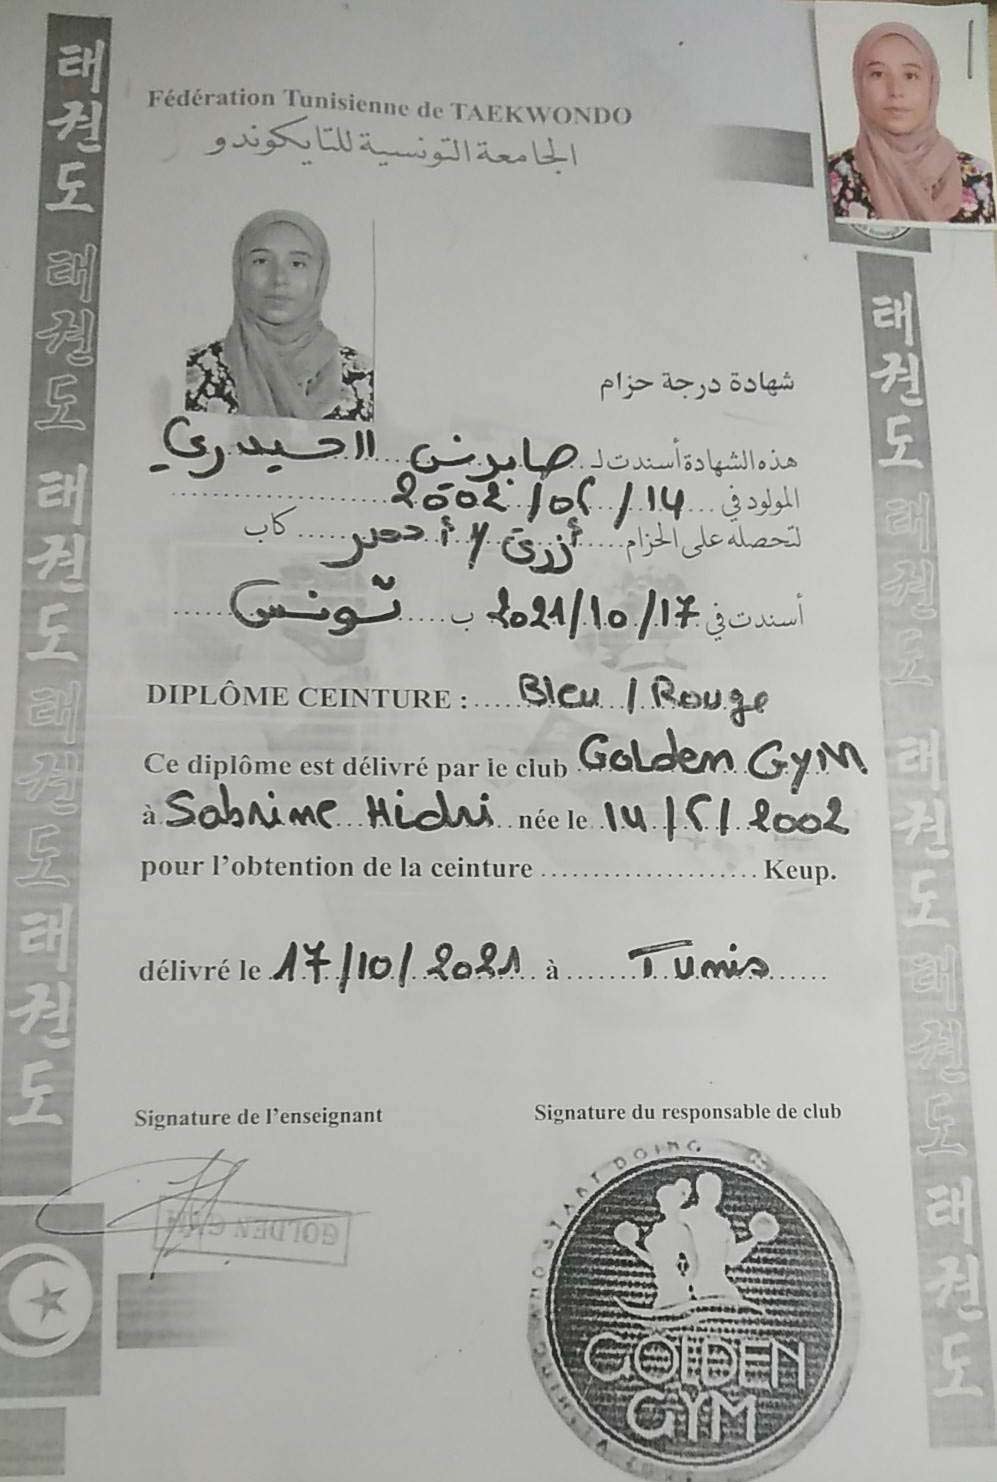 Fédération Tunisienne de TAEKWONDO
الجامعة التونسية للتايكوندو
شهادة درجة حزام
هذه الشهادة أسندت لـ صابرين الحيدري
المولود في 14/05/2002
لتحصله على الحزام أزرق / أحمر كاب
أسندت في 17/10/2021 ب تونس
DIPLÔME CEINTURE : Bleu / Rouge
Ce diplôme est délivré par le club Golden Gym
à Sabrine Hidri née le 14/5/2002
pour l'obtention de la ceinture .................... Keup.
délivré le 17/10/2021 à Tunis
Signature de l'enseignant
Signature du responsable de club
GOLDEN GYM
START DOING
GOLDEN
GYM
태권도 태권도 태권도 태권도 태권도
태권도 태권도 태권도 태권도 태권도